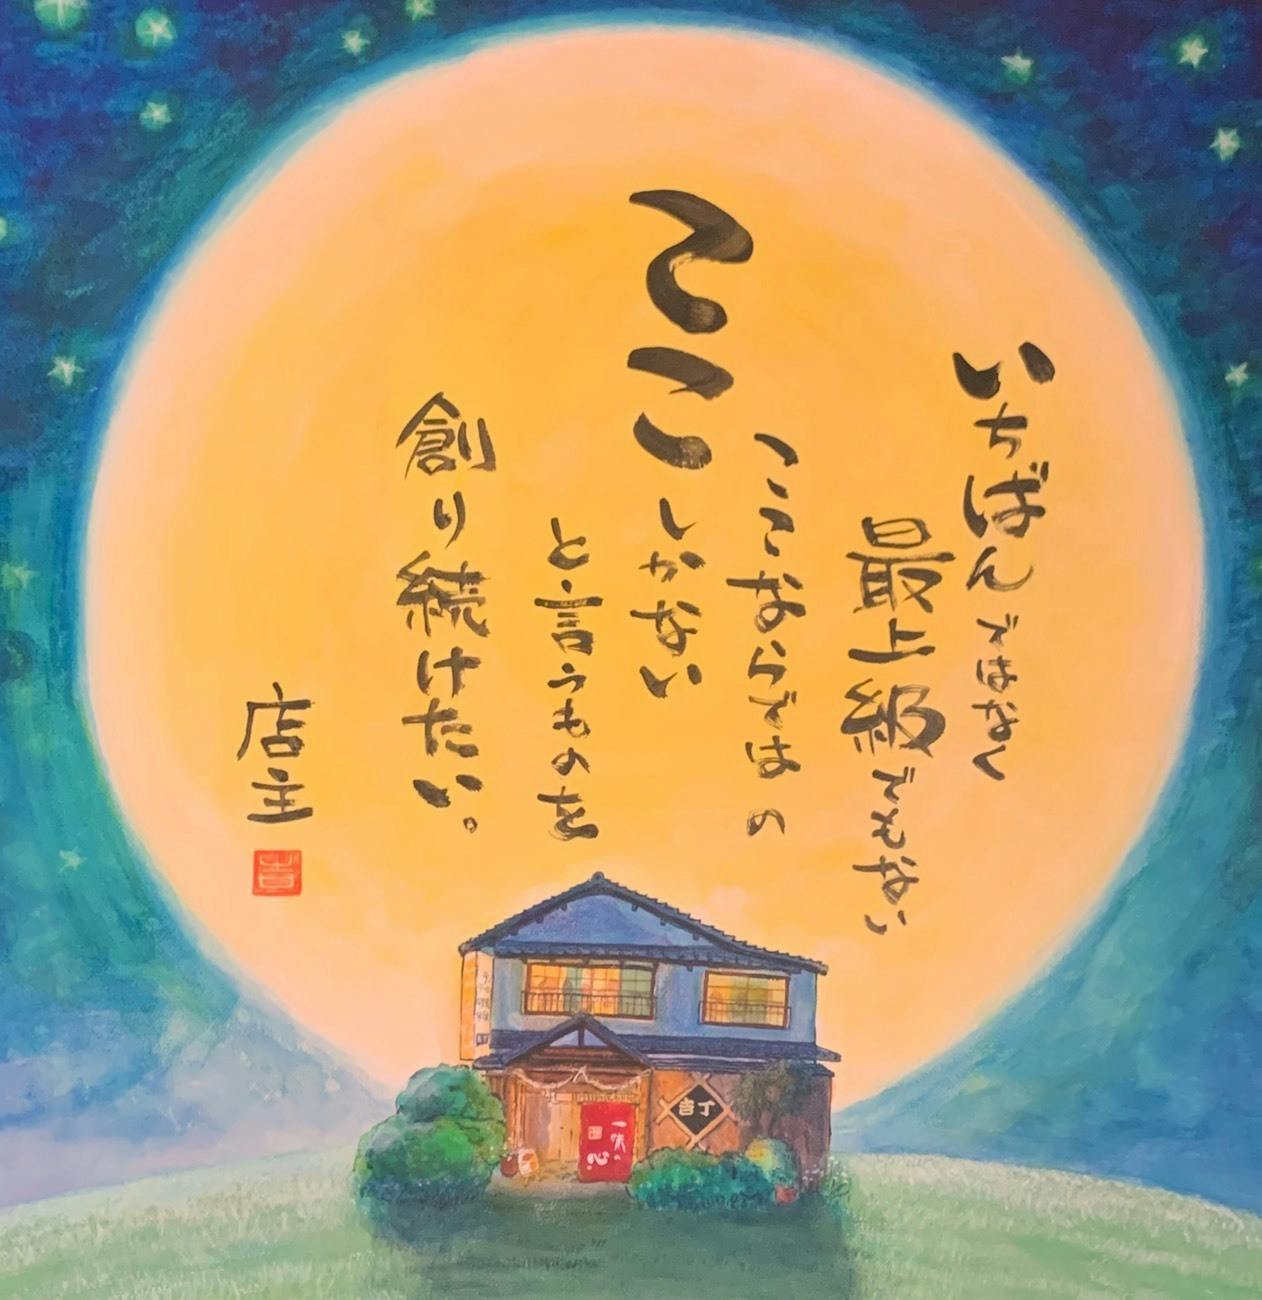 いちばんではなく
最上級でもない
ここならではの
ここしかない
と言うものを
創り続けたい。
店主
吉
吉丁
一味の
心